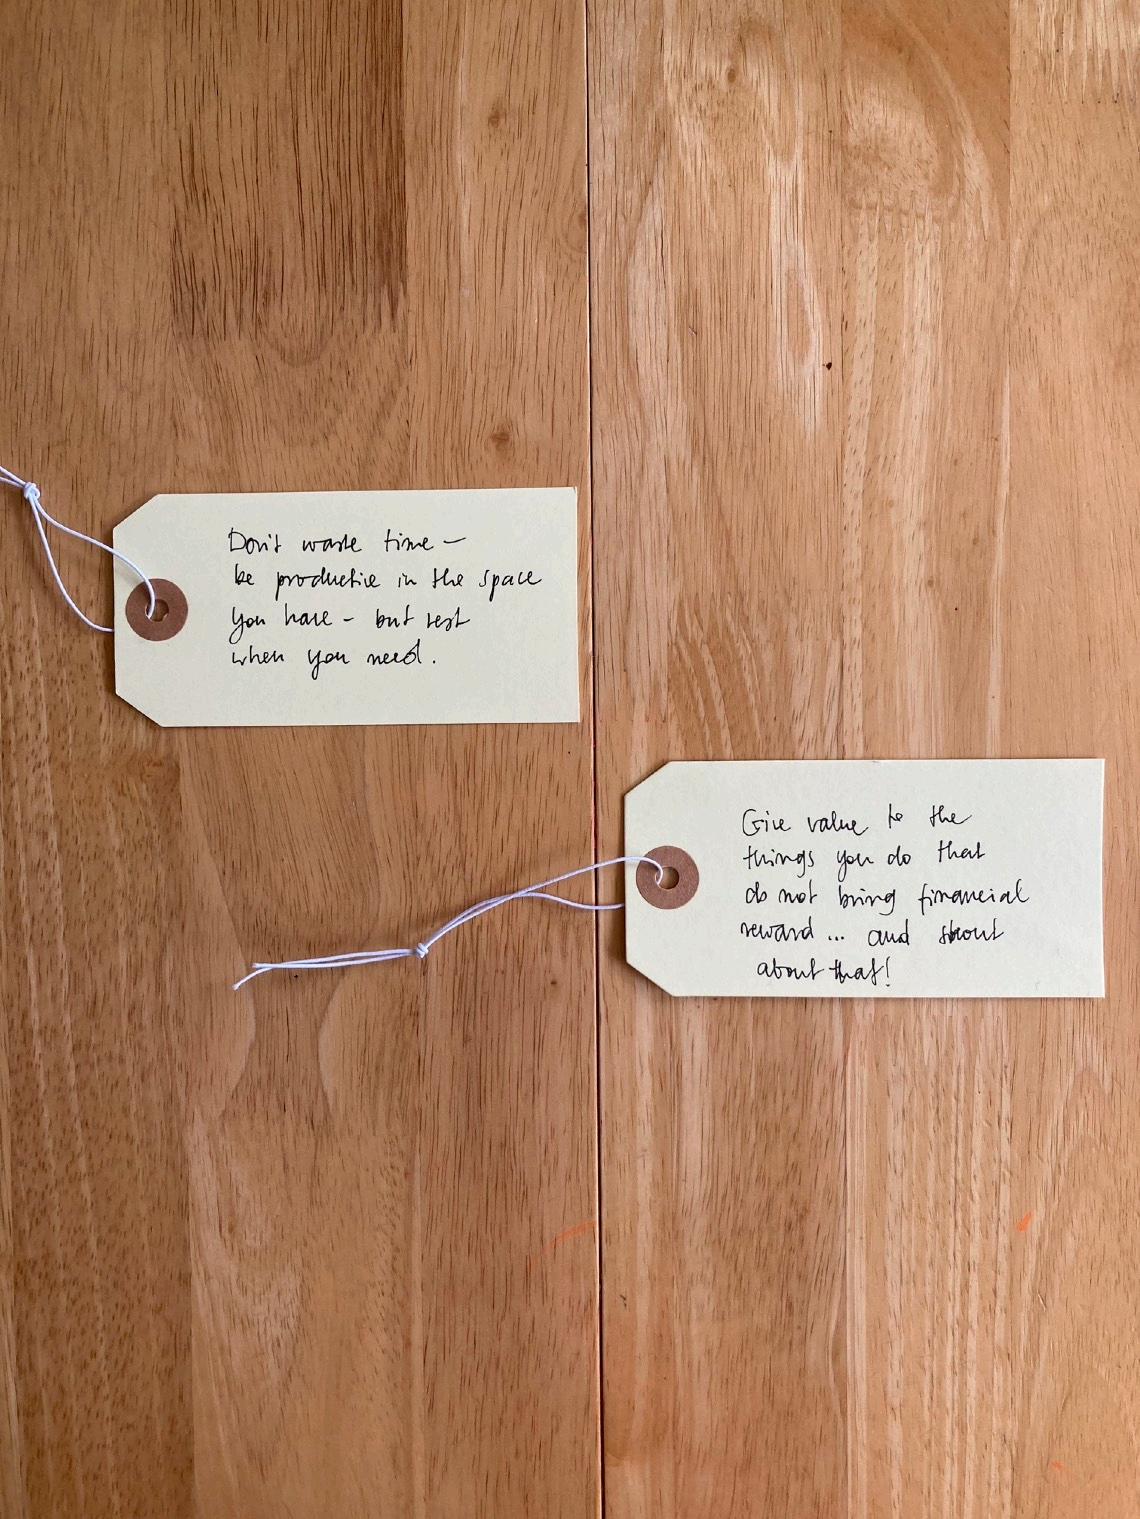 Don't waste time –
be productive in the space
you have – but rest
when you need.
Give value to the
things you do that
do not bring financial
reward ... and shout
about that!